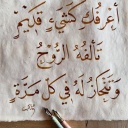 أعرفك كشيء قديم
تألفه الروح
وتنحاز له في كل مرة